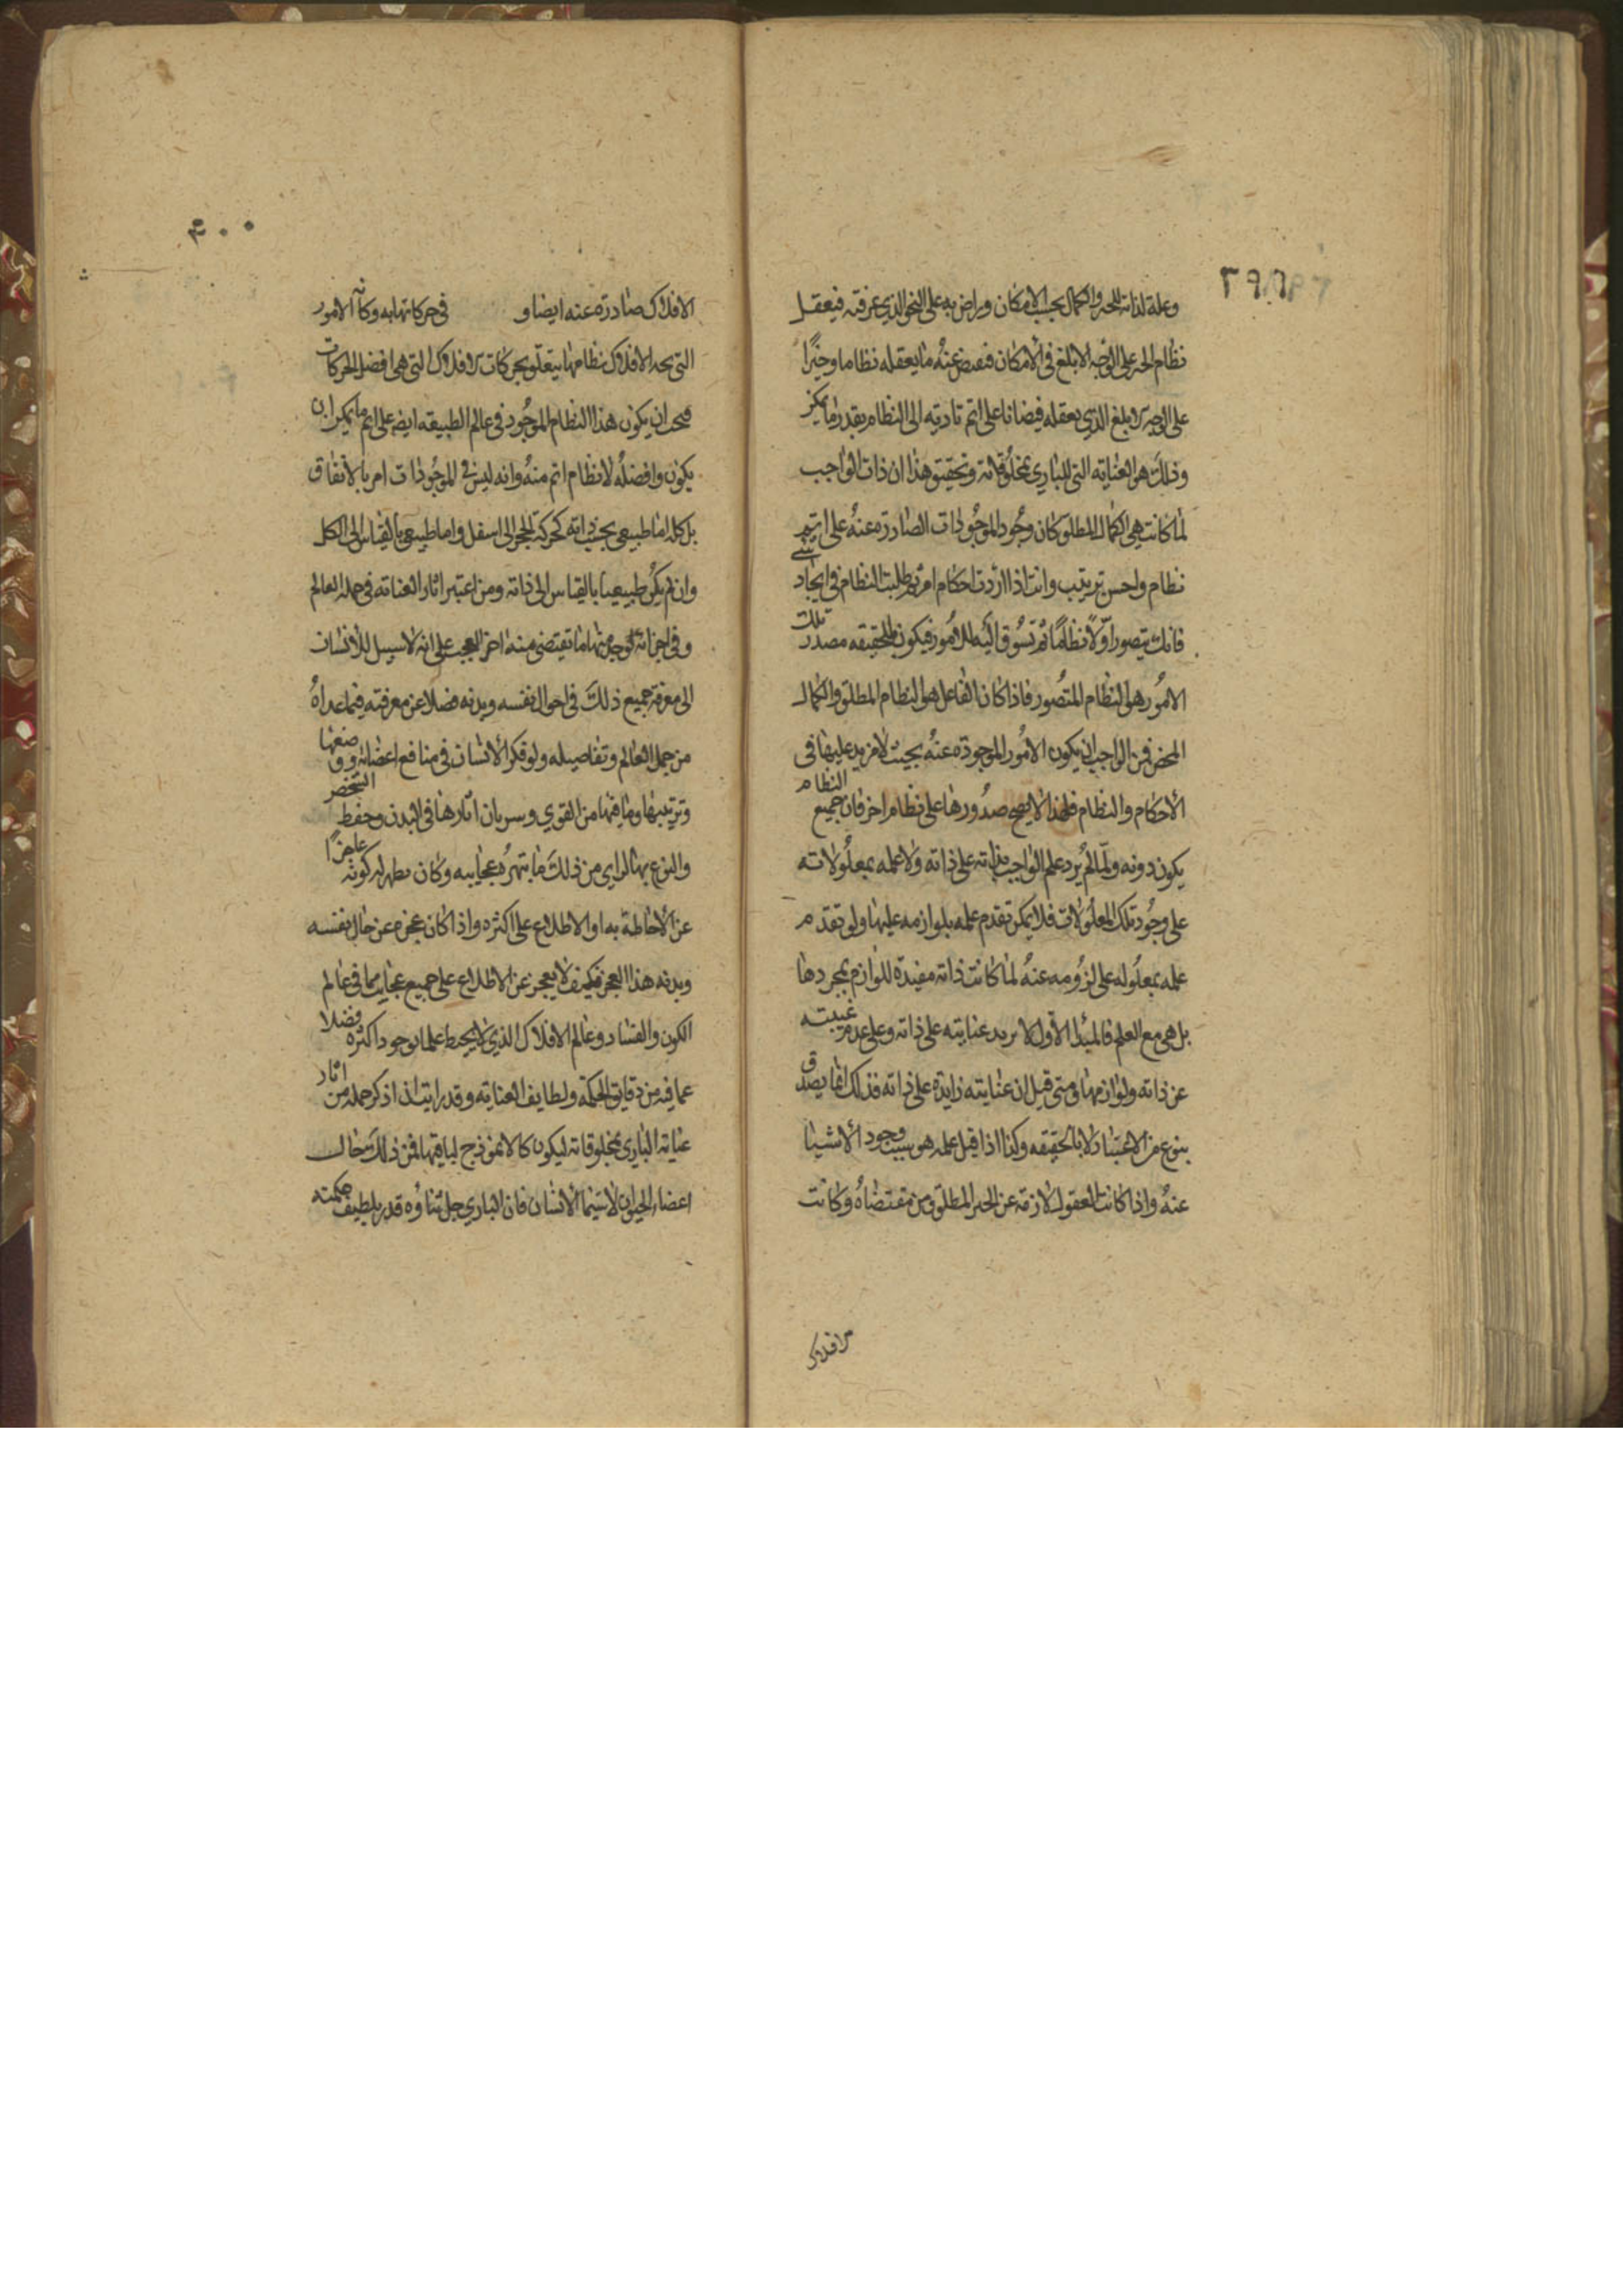 ٣٩٩
وعلة لذاته للخير والكمال بحسب الامكان وراض به على النحو الذي عرفته فيعقل
نظام الخير على الوجه الابلغ في الامكان فيفيض عنه ما يعقله نظاما وخيرًا
على الوجه الابلغ الذي يعقله فيضانا على اتم تادية الى النظام بقدر ما يمكن
وذلك هو العناية التي للباري بمخلوقاته وتحقيق هذا ان ذات الواجب
لما كانت هي الكمال المطلق كان وجود الموجودات الصادرة عنه على اتم
نظام واحسن ترتيب وانت اذا اردت احكام امر ثم طلبت النظام في ايجاد شي
فانك تتصور اولا نظاما ثم تسوق اليه الامور فيكون بالحقيقه مصدر تلك
الامور هو النظام المتصور فاذا كان الفاعل هو النظام المطلق والكمال
المحض فمن الواجب ان يكون الامور الموجودة عنه بحيث لا مزيد عليها في
الاحكام والنظام فلهذا لا يصح صدورها على نظام اخر فان جميع النظام
يكون دونه ولما لم يزد علم الواجب بذاته على ذاته ولا علمه بمعلولاته
على وجود تلك المعلولات فلا يمكن تقدم علمه بلوازمه عليها ولو تقدم
علمه بمعلوله على لزومه عنه لما كانت ذاته مفيدة للوازم بمجردها
بل هي مع العلم فالمبدا الاول لا يزيد عنايته على ذاته وعلى عدم غيبته
عن ذاته ولوازمها ومتى قيل ان عنايته زايدة على ذاته فذلك انما يصدق
بنوع من الاعتبار لا بالحقيقه وكذا اذا قيل علمه هو سبب وجود الاشيا
عنه واذا كانت العقول لازمة عن الخير المطلق ومن مقتضاه وكانت
الافلاك
٤٠٠
الافلاك صادرة عنه ايضا و في حركاتها به وكانت الامور
التي تحت الافلاك نظامها يتعلق بحركات الافلاك التي هي افضل الحركات
صح ان يكون هذا النظام الموجود في عالم الطبيعه ايضا على اتم ما يمكن ان
يكون وافضله لا نظام اتم منه وانه ليس في الموجودات امر بالاتفاق
بل كله اما طبيعي بحسب ذاته كحركة الحجر الى اسفل واما طبيعي بالقياس الى الكل
وان لم يكن طبيعيا بالقياس الى ذاته ومن اعتبر اثار العناية في جملة العالم
وفي اجزائه لوجد منها ما تقتضي منه اخر العجب على انه لا سبيل للانسان
الى معرفة جميع ذلك في احوال نفسه وبدنه فضلا عن معرفته فيما عداه
من جمل العالم وتفاصيله ولو فكر الانسان في منافع اعضائه ووضعها
وترتيبها وما فيها من القوي وسريان اثارها في البدن وحفظ الشخص
والنوع بها لراي من ذلك ما تبهره عجايبه وكان مظهرا له كونه عاجزًا
عن الاحاطة به او الاطلاع على اكثره واذا كان عجزه عن حال نفسه
وبدنه هذا العجز فكيف لا يعجز عن الاطلاع على جميع عجايب ما في عالم
الكون والفساد وعالم الافلاك الذي لا يحيط علما بوجود اكثره فضلا
عما فيه من دقايق الحكمة ولطايف العناية وقد رايت ان اذكر جملة من اثار
عناية الباري بمخلوقاته ليكون كالانموذج لباقيها فمن ذلك حال
اعضاء الحيوان لا سيما الانسان فان الباري جل ثناؤه قدر بلطيف حكمته